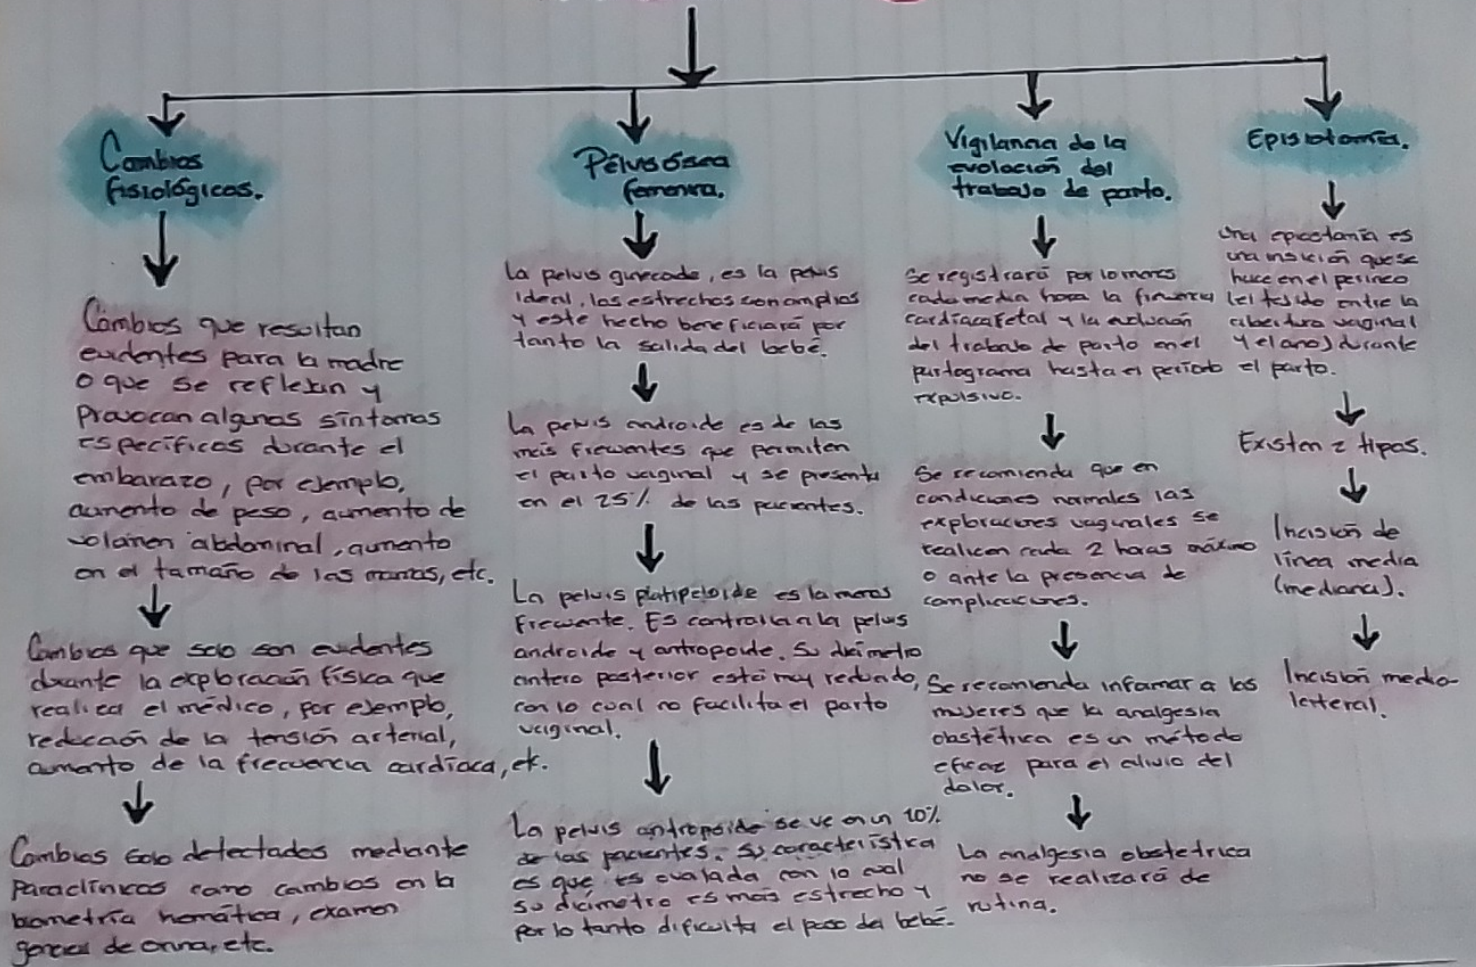 Cambios
fisiológicos.
Cambios que resultan
evidentes para la madre
o que se reflejan y
provocan algunos síntomas
específicos durante el
embarazo, por ejemplo,
aumento de peso, aumento de
volumen abdominal, aumento
en el tamaño de las mamas, etc.
Cambios que solo son evidentes
durante la exploración física que
realiza el médico, por ejemplo,
reducción de la tensión arterial,
aumento de la frecuencia cardíaca, etc.
Cambios solo detectados mediante
paraclínicos como cambios en la
biometría hemática, examen
general de orina, etc.
Pélvis ósea
femenina.
La pelvis ginecoide, es la pelvis
ideal, los estrechos son amplios
y este hecho beneficiará por
tanto la salida del bebé.
La pelvis androide es de las
más frecuentes que permiten
el parto vaginal y se presenta
en el 25% de las pacientes.
La pelvis platipeloide es la menos
frecuente. Es contraria a la pelvis
androide y antropoide. Su diámetro
antero posterior está muy reducido,
con lo cual no facilita el parto
vaginal.
La pelvis antropoide se ve en un 10%
de las pacientes. Su característica
es que es ovalada con lo cual
su diámetro es más estrecho y
por lo tanto dificulta el paso del bebé.
Vigilancia de la
evolución del
trabajo de parto.
Se registrará por lo menos
cada media hora la frecuencia
cardíaca fetal y la evolución
del trabajo de parto en el
partograma hasta el periodo
expulsivo.
Se recomienda que en
condiciones normales las
exploraciones vaginales se
realicen cada 2 horas máximo
o ante la presencia de
complicaciones.
Se recomienda informar a las
mujeres que la analgesia
obstétrica es un método
eficaz para el alivio del
dolor.
La analgesia obstetrica
no se realizará de
rutina.
Episiotomía.
Una episiotomía es
una insición que se
hace en el perineo
(el tejido entre la
abertura vaginal
y el ano) durante
el parto.
Existen 2 tipos.
Incisión de
línea media
(mediana).
Incisión medio-
lateral.